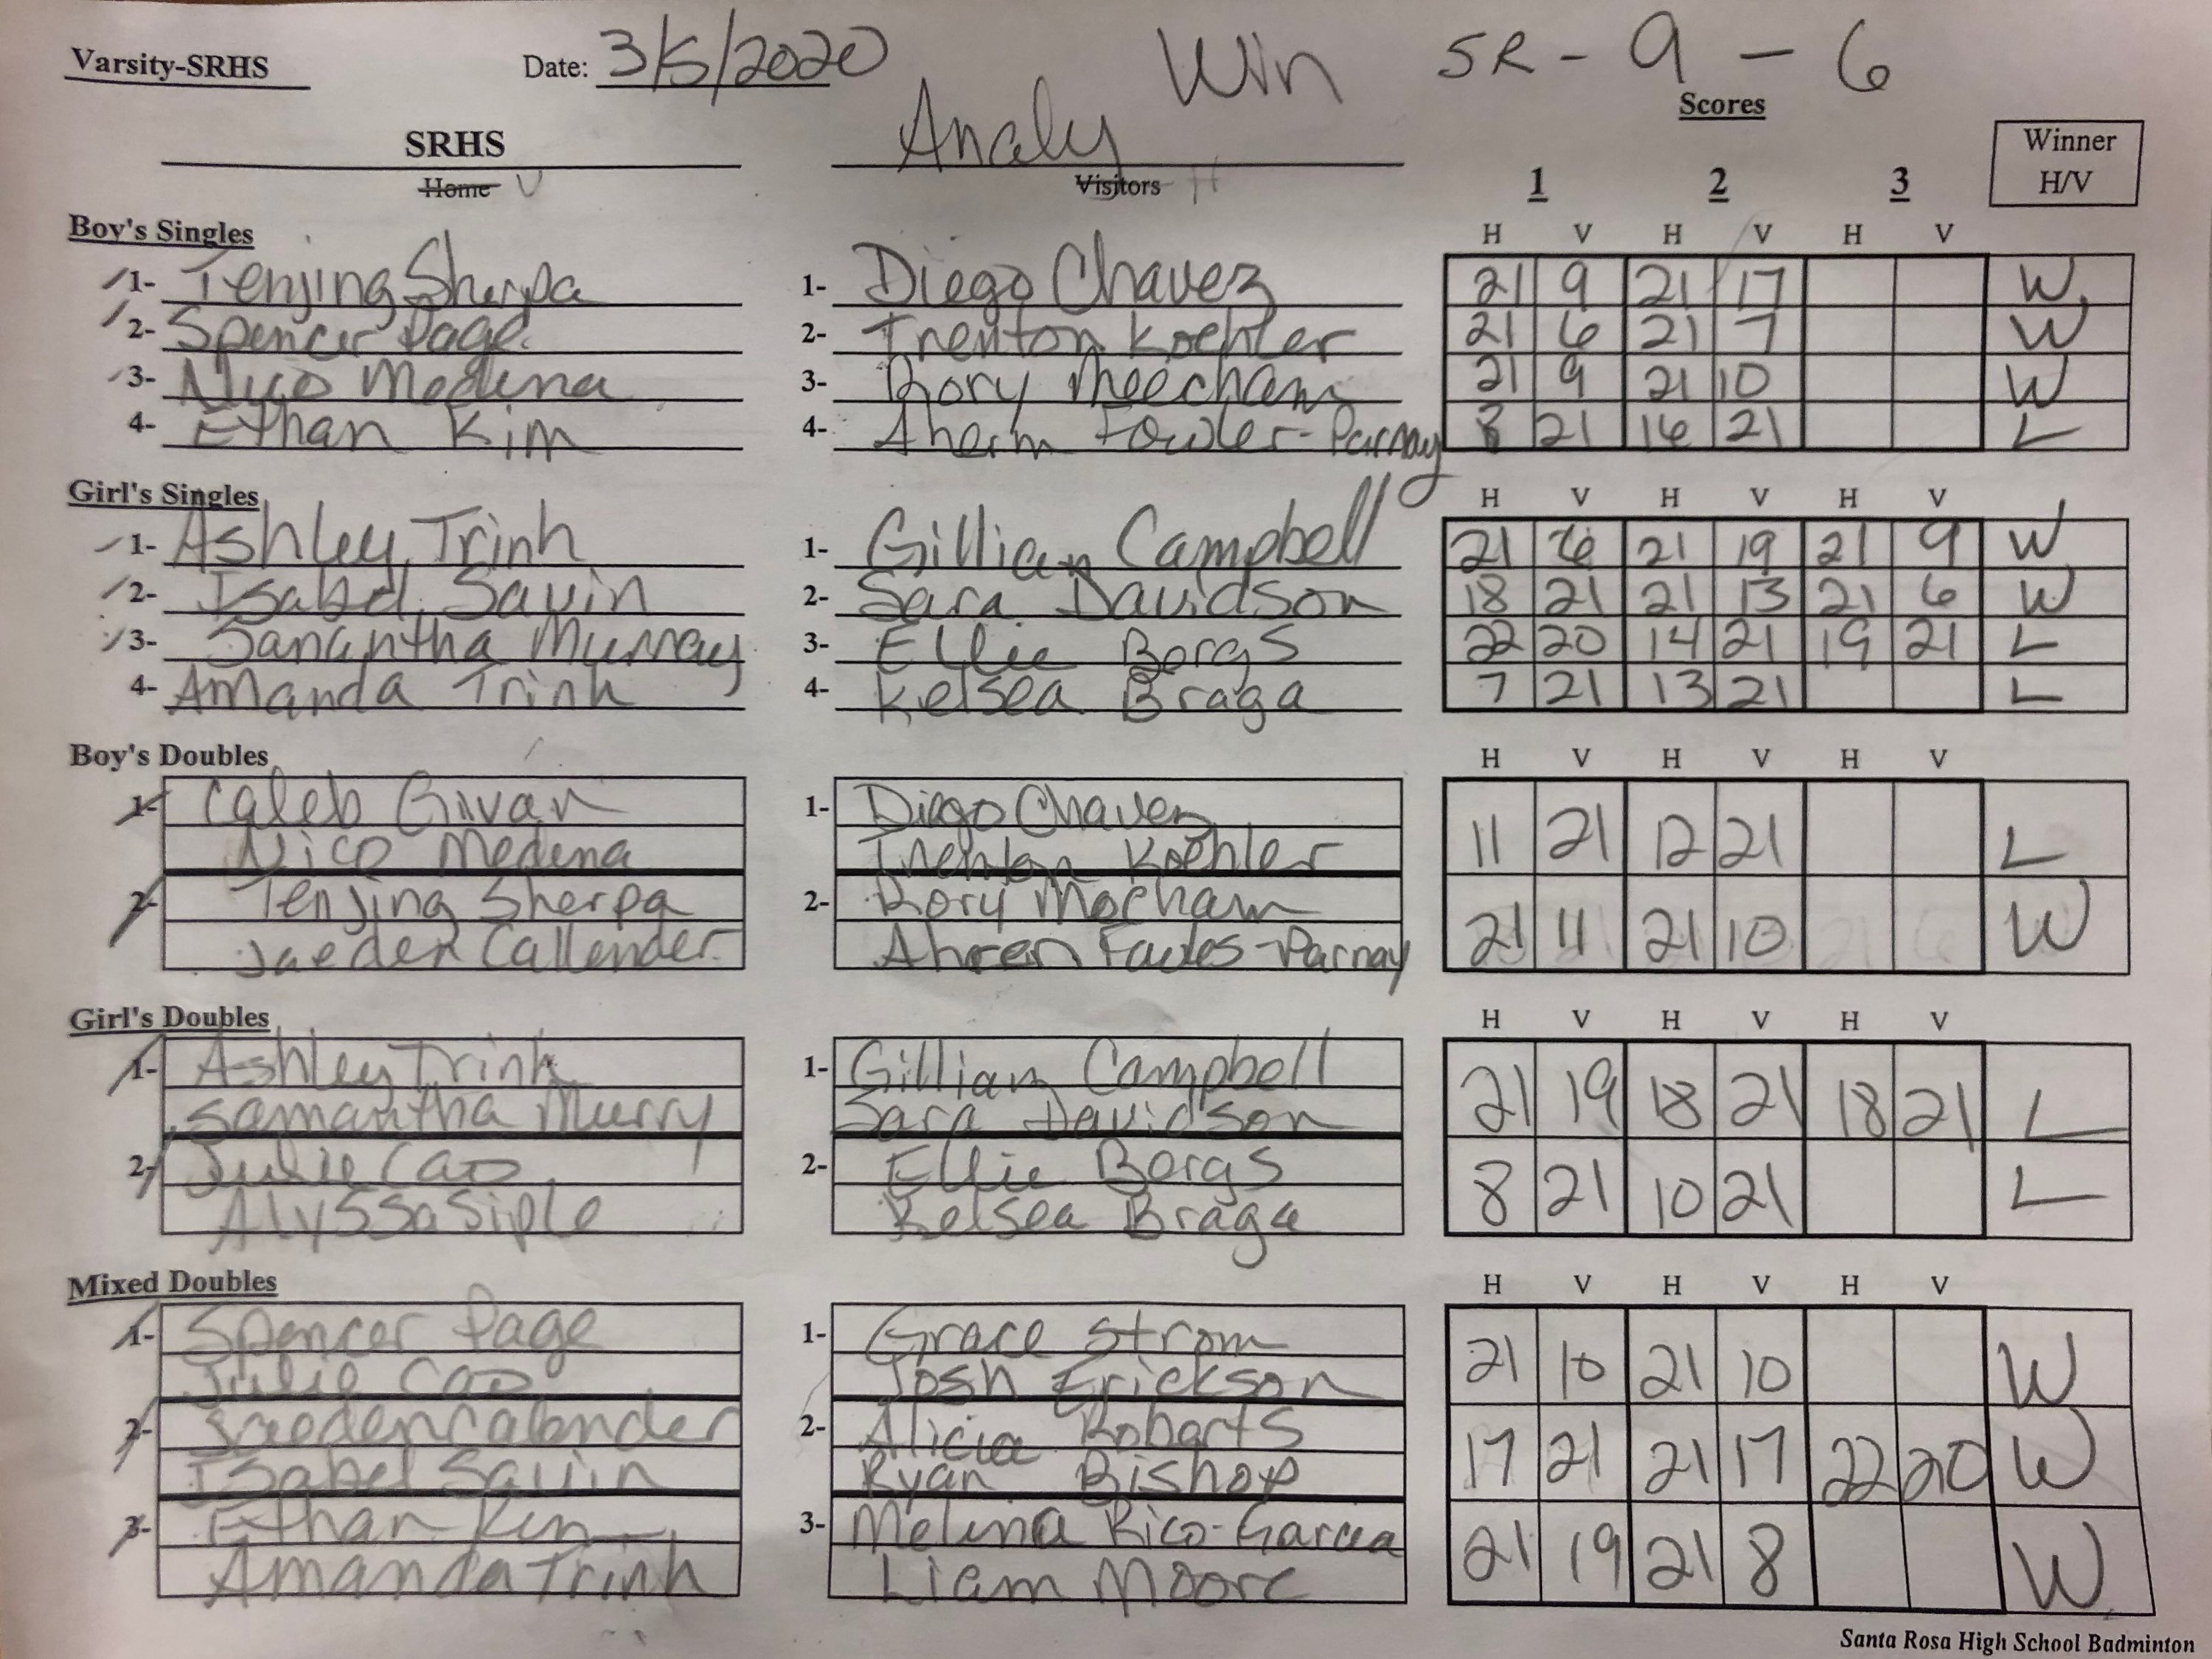 Varsity-SRHS Date: 3/5/2020 Win SR - 9 - 6
Scores
SRHS Analy Winner
Home V Visitors H 1 2 3 H/V
Boy's Singles H V H V H V
1- Tenjing Sherpa 1- Diego Chavez 21 9 21 17 W
2- Spencer Page 2- Trenton Koehler 21 6 21 7 W
3- Nico Medina 3- Rory Meecham 21 9 21 10 W
4- Ethan Kim 4- Fowler-Parnay 8 21 16 21 L
Girl's Singles H V H V H V
1- Ashley Trinh 1- Gillian Campbell 21 21 19 21 9 W
2- Isabel Savin 2- Sara Davidson 18 21 21 13 21 6 W
3- Samantha Murray 3- Ellie Borgs 22 20 14 21 19 21 L
4- Amanda Trinh 4- Kelsea Braga 7 21 13 21 L
Boy's Doubles H V H V H V
1- Caleb Givan 1- Diego Chavez 11 21 12 21 L
Nico Medina Trenton Koehler
2- Tenjing Sherpa 2- Rory Mecham 21 11 21 10 W
Jaeden Callender Ahren Fowles-Parnay
Girl's Doubles H V H V H V
1- Ashley Trinh 1- Gillian Campbell 21 19 18 21 18 21 L
Samantha Murry Sara Davidson
2- Julie Cao 2- Ellie Borgs 8 21 10 21 L
Alyssa Siple Kelsea Braga
Mixed Doubles H V H V H V
1- Spencer Page 1- Grace Strom 21 10 21 10 W
Julie Cao Josh Erickson
2- Jaeden Calander 2- Alicia Robarts 17 21 21 17 22 20 W
Isabel Savin Ryan Bishop
3- Ethan Kim 3- Melina Rico-Garcia 21 19 21 8 W
Amanda Trinh Liam Moore
Santa Rosa High School Badminton